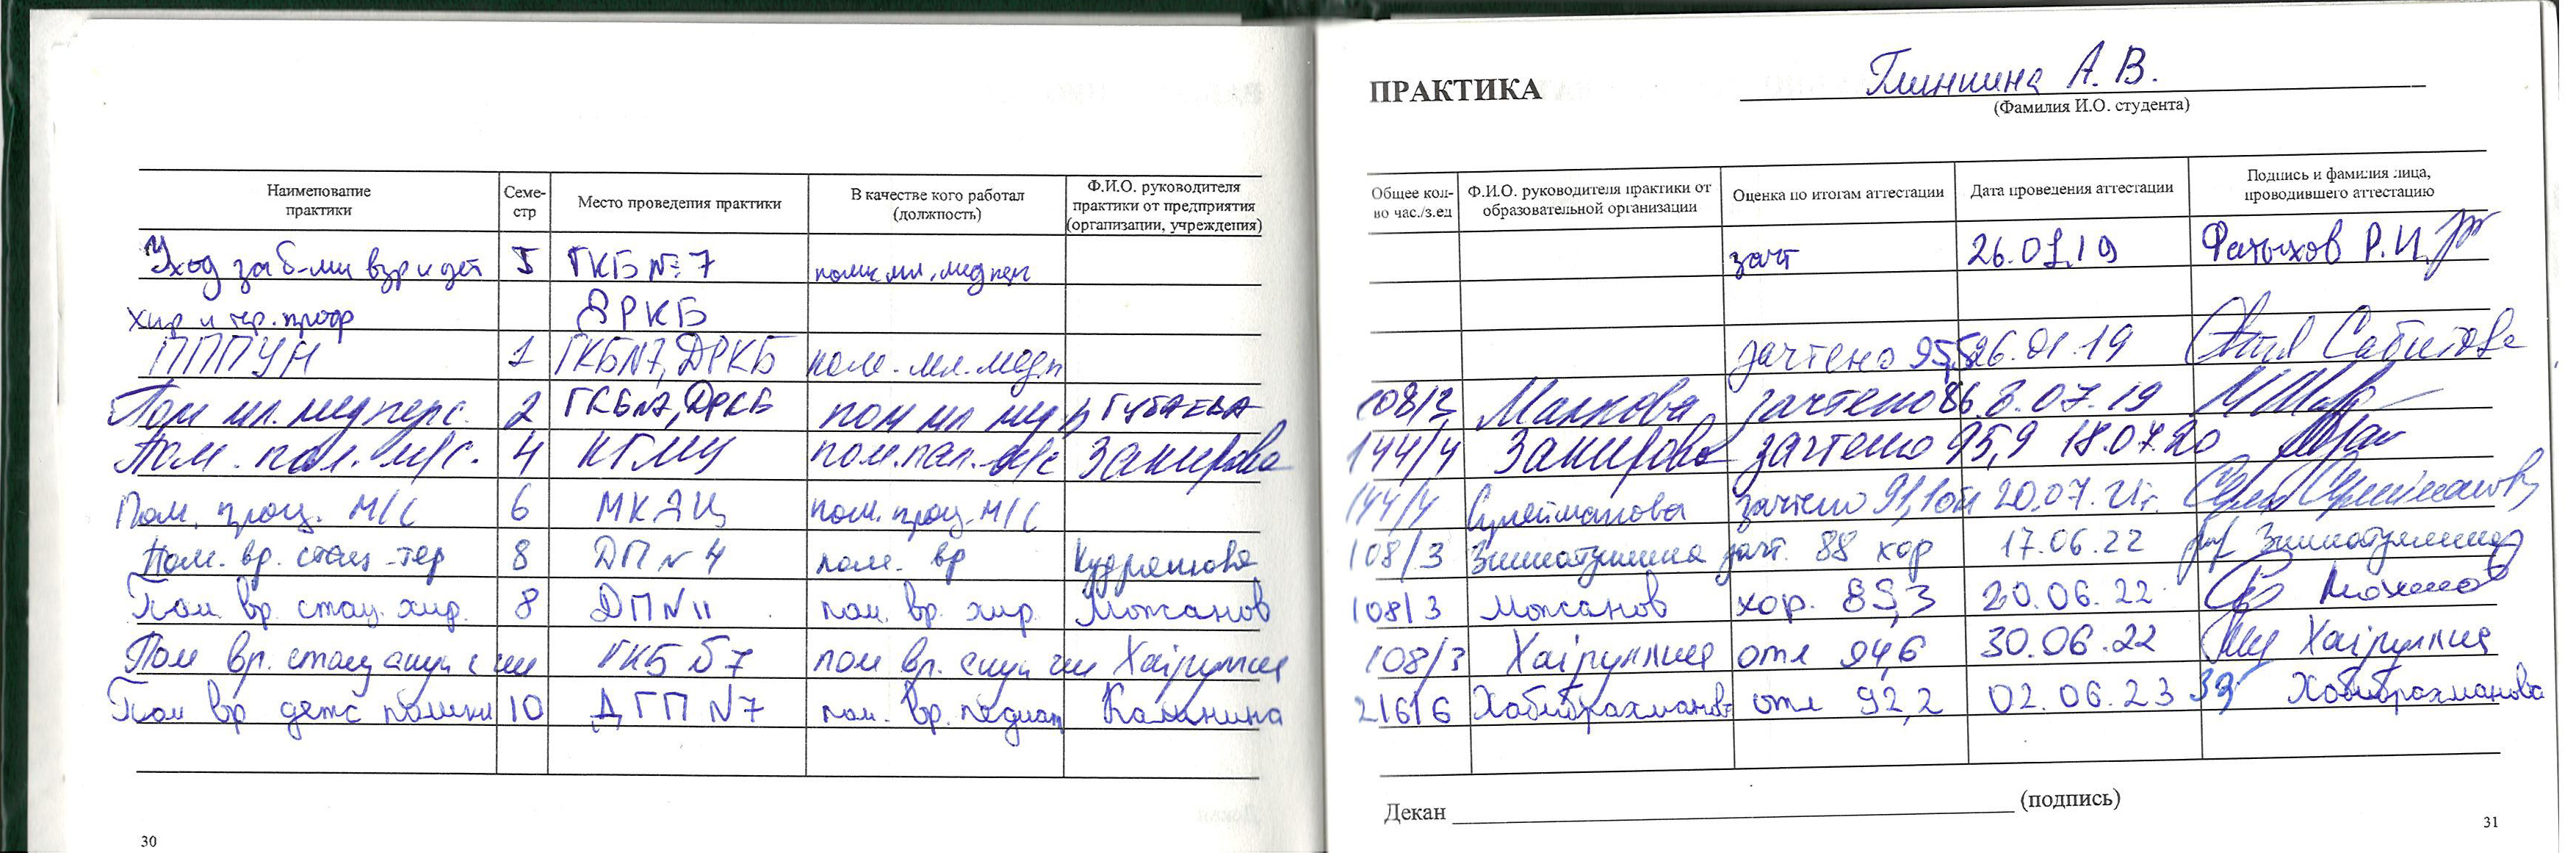 Наименование практики
Семестр
Место проведения практики
В качестве кого работал (должность)
Ф.И.О. руководителя практики от предприятия (организации, учреждения)
Уход за б-ми взр и дет I ГКБ №7 пом. мл. мед перс
хир и тер. проф ДРКБ
ПППУН 1 ГКБN7, ДРКБ пом. мл. медп
Пом мл. медперс. 2 ГКБN7, ДРКБ пом мл мед п Губаева
Пом. пал. м/с. 4 КГМУ пом. пал. м/с Закирова
Пом. проц. м/с 6 МКДЦ пом. проц. м/с
Пом. вр. стац. тер 8 ДП N 4 пом. вр Кудряшова
Пом. вр. стац. хир. 8 ДП N 11 пом. вр. хир. Можанов
Пом вр. стац акуш и гин ГКБ №7 пом вр. акуш гин Хайруллин
Пом вр детс поликл 10 ДГП N7 пом. вр. педиат Калинина
30
ПРАКТИКА А. В.
(Фамилия И.О. студента)
Общее кол-во час./з.ед
Ф.И.О. руководителя практики от образовательной организации
Оценка по итогам аттестации
Дата проведения аттестации
Подпись и фамилия лица, проводившего аттестацию
зачт 26.01.19 Фатыхов Р.И.
зачтено 95,5 26.01.19 Сабитова
108/3 Малкова зачтено 86 8.07.19
144/4 Закирова зачтено 95,9 18.07.20
144/4 Сулейманова зачтено 91,1 20.07.21г. Сулейманова
108/3 Зиннатуллина зачт. 88 хор 17.06.22 Зиннатуллина
108/3 Можанов хор. 89,3 20.06.22 Можанов
108/3 Хайруллин отл 94,6 30.06.22 Хайруллин
216/6 Хабибрахманова отл 92,2 02.06.23 Хабибрахманова
Декан (подпись)
31